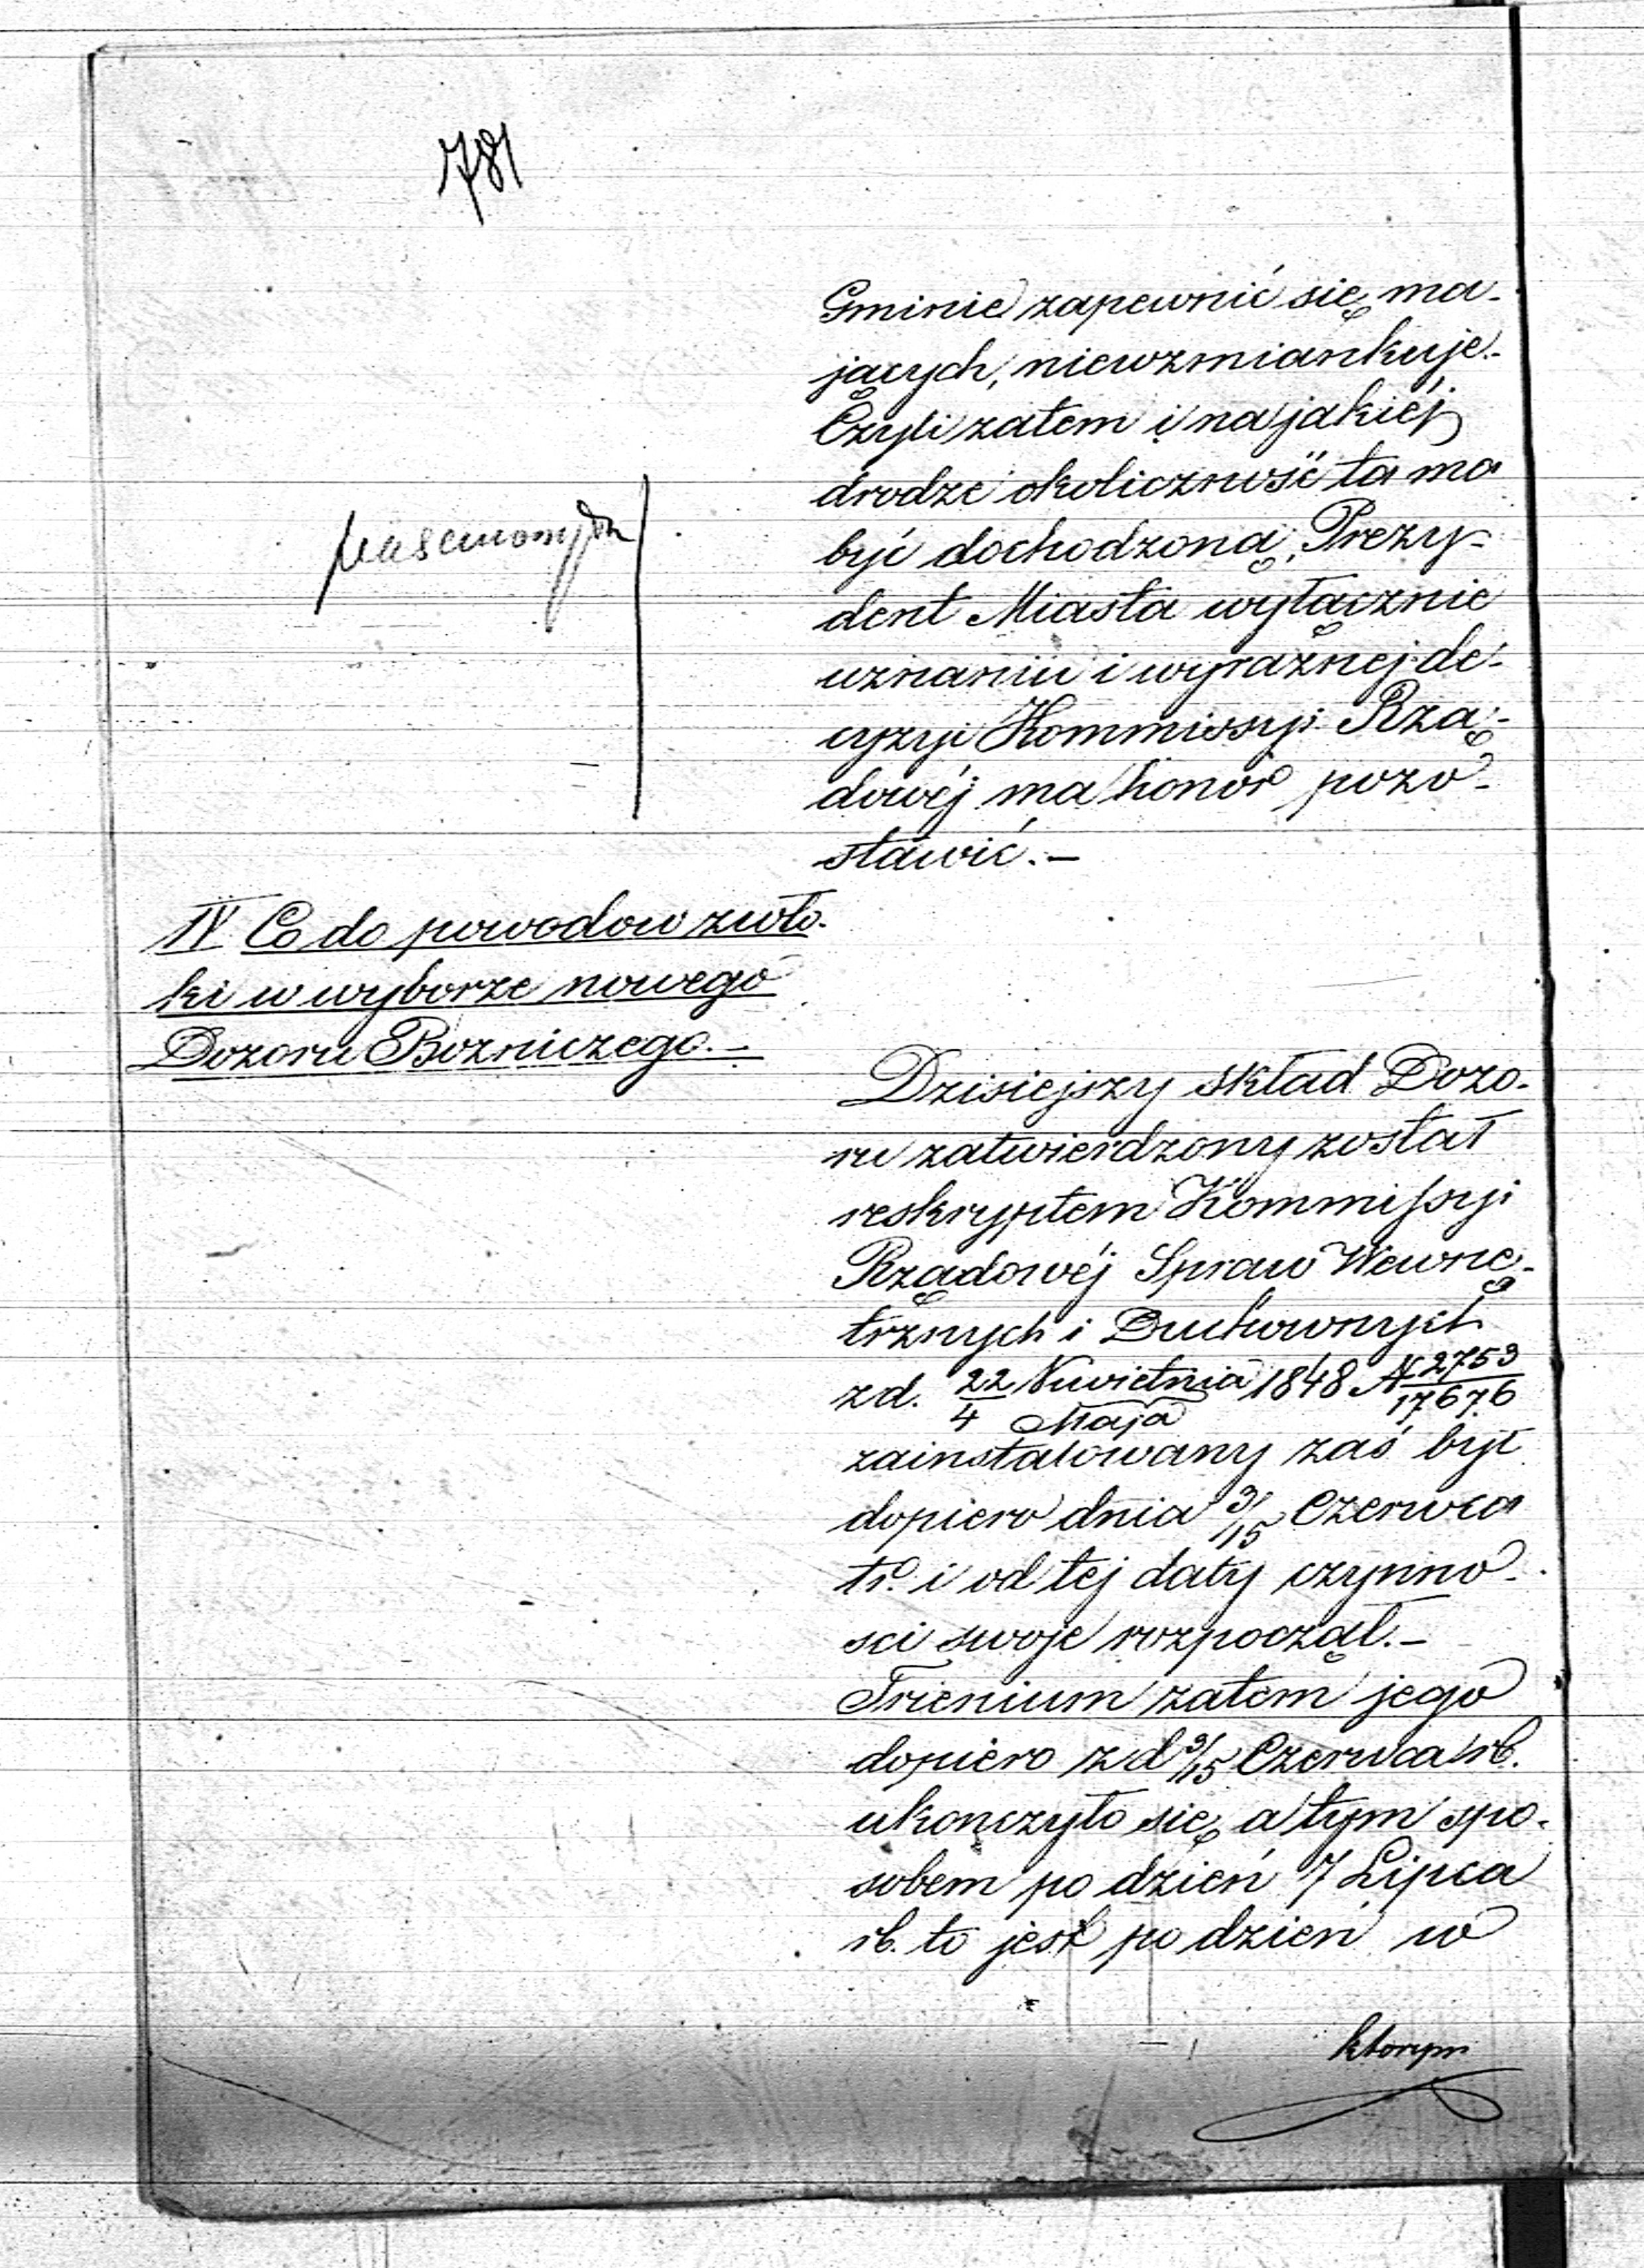 781
Gminie zapewnić się ma-
jących, niewzmiankuje.-
Czyli zatem i na jakiéj
drodze okoliczność ta ma
być dochodzoną, Prezy-
dent Miasta wyłącznie
uznaniu i wyraźnej de-
cyzyi Kommissyi Rzą-
dowéj ma honor pozo-
stawić.-
IV Co do powodow zwło-
ki w wyborze nowego
Dozoru Bozniczego.-
Dzisiejszy skład Dozo-
ru zatwierdzony został
reskryptem Kommissyi
Rządowéj Spraw Wewnę-
trznych i Duchownych
z d. 22 Kwietnia/4 Maja 1848 N 2753/17676
zainstalowany zaś był
dopiero dnia 3/15 Czerwca
tr. i od tej daty czynno-
sci swoje rozpoczął.-
Trienium zatem jego
dopiero z d 3/15 Czerwca rb.
ukonczyło się, a tym spo-
sobem po dzień 7 Lipca
rb. to jest po dzień w
ktorym